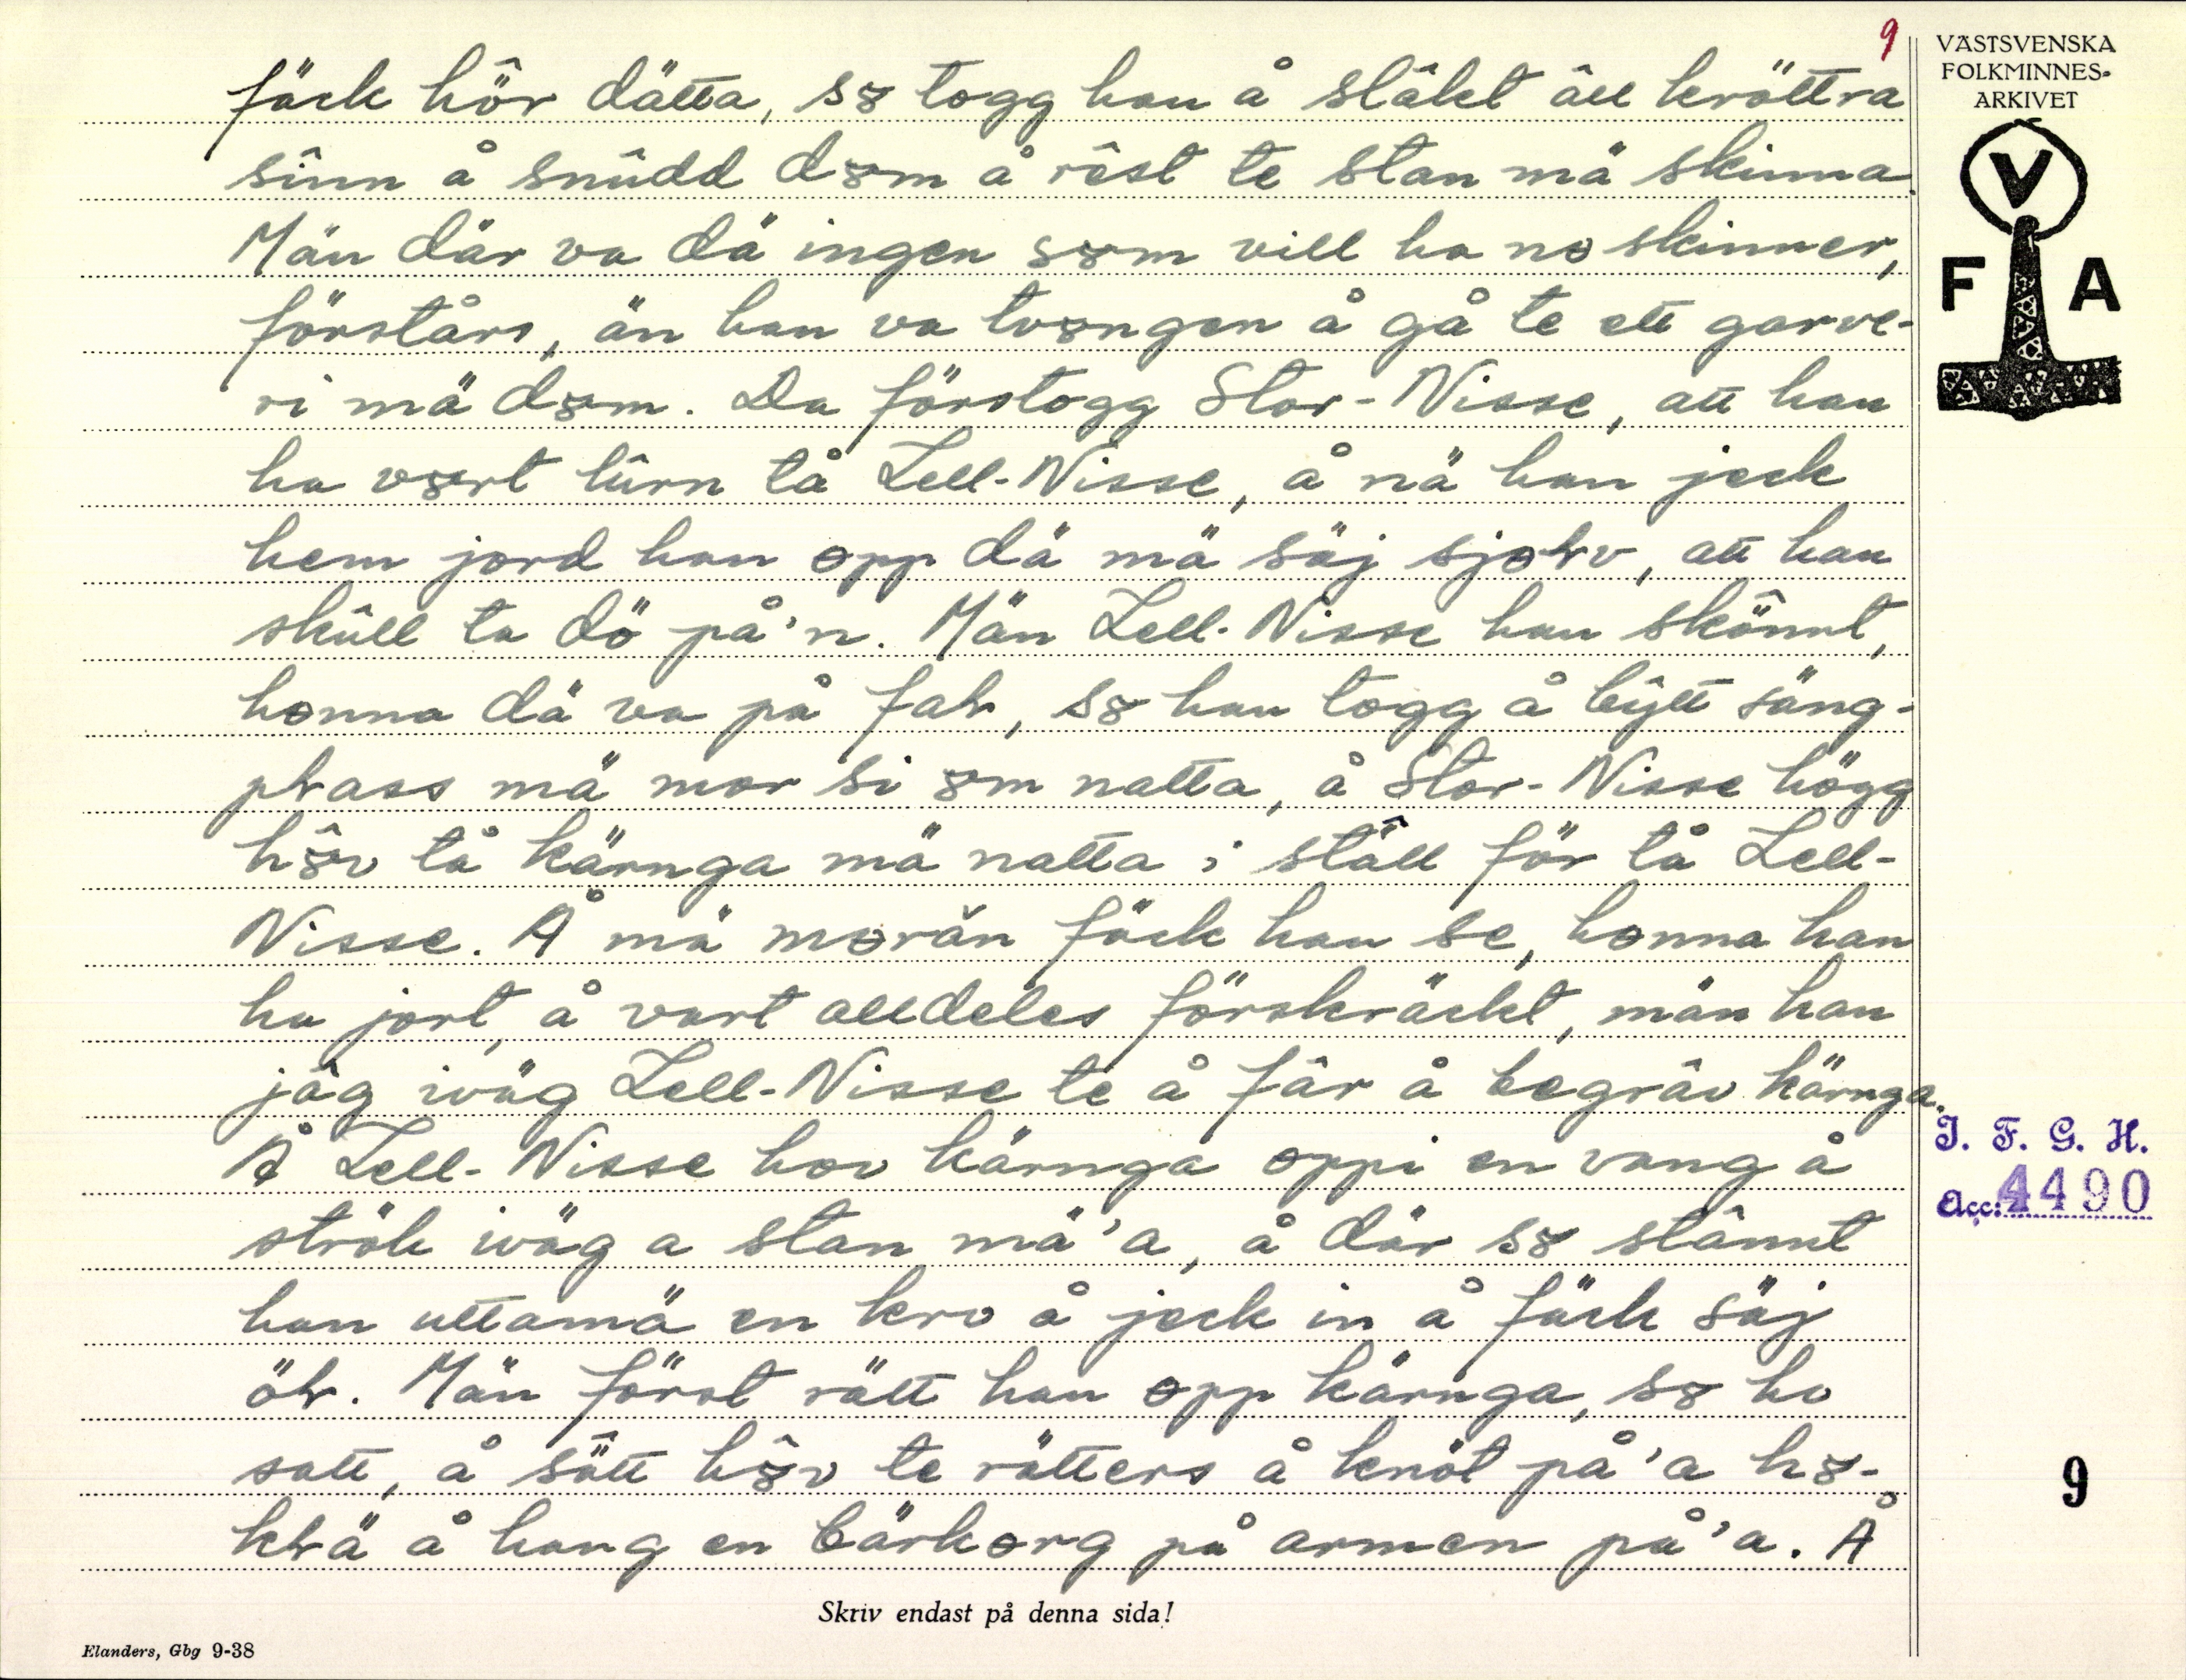 9
VÄSTSVENSKA
FOLKMINNES-
ARKIVET
V
F A
fäck hôr dätta, sɤ togg han å slâkt âll kröttra
sinn å snûdd dɤm å rêst te stan mä skinna.
Män där va dä ingen sɤm vill ha nɵ skinner,
förstårs, än han va tvɤngen å gå te ett garve-
ri mä dɤm. Da förstogg Stor-Nisse, att han
ha vɤrt lûrn tå Lell-Nisse, å nä han jeck
hem jord han ɵpp dä mä säj sjɵłv, att han
skûll ta dö på'n. Män Lell-Nisse han skônnt,
hɵnna dä va på fał, sɤ han togg å bŷtt säng-
płass mä mor si ɤm natta, å Stor-Nisse högg
hɤ̂v tå kärnga mä natta i ställ för tå Lell-
Nisse. Å mä mɵrăn fäck han se, hɵnna han
ha jort, å vart alldeles förskräckt, män han
jâg iväg Lell-Nisse te å fâr å begrâv kärnga.
Å Lell-Nisse hov kärnga ɵppi en vang å
strök iväg a stan mä'a, å där sɤ stânnt
han uttamä en kro å jeck in å fäck säj
öł. Män först rätt han ɵpp kärnga, sɤ ho
satt, å sätt hɤ̂v te rätters å knöt på'a hɤ-
kłä å hang en bärkɵrg på armen på'a. Å
I. F. G. H.
Acc: 4490
9
Skriv endast på denna sida!
Elanders, Gbg 9-38